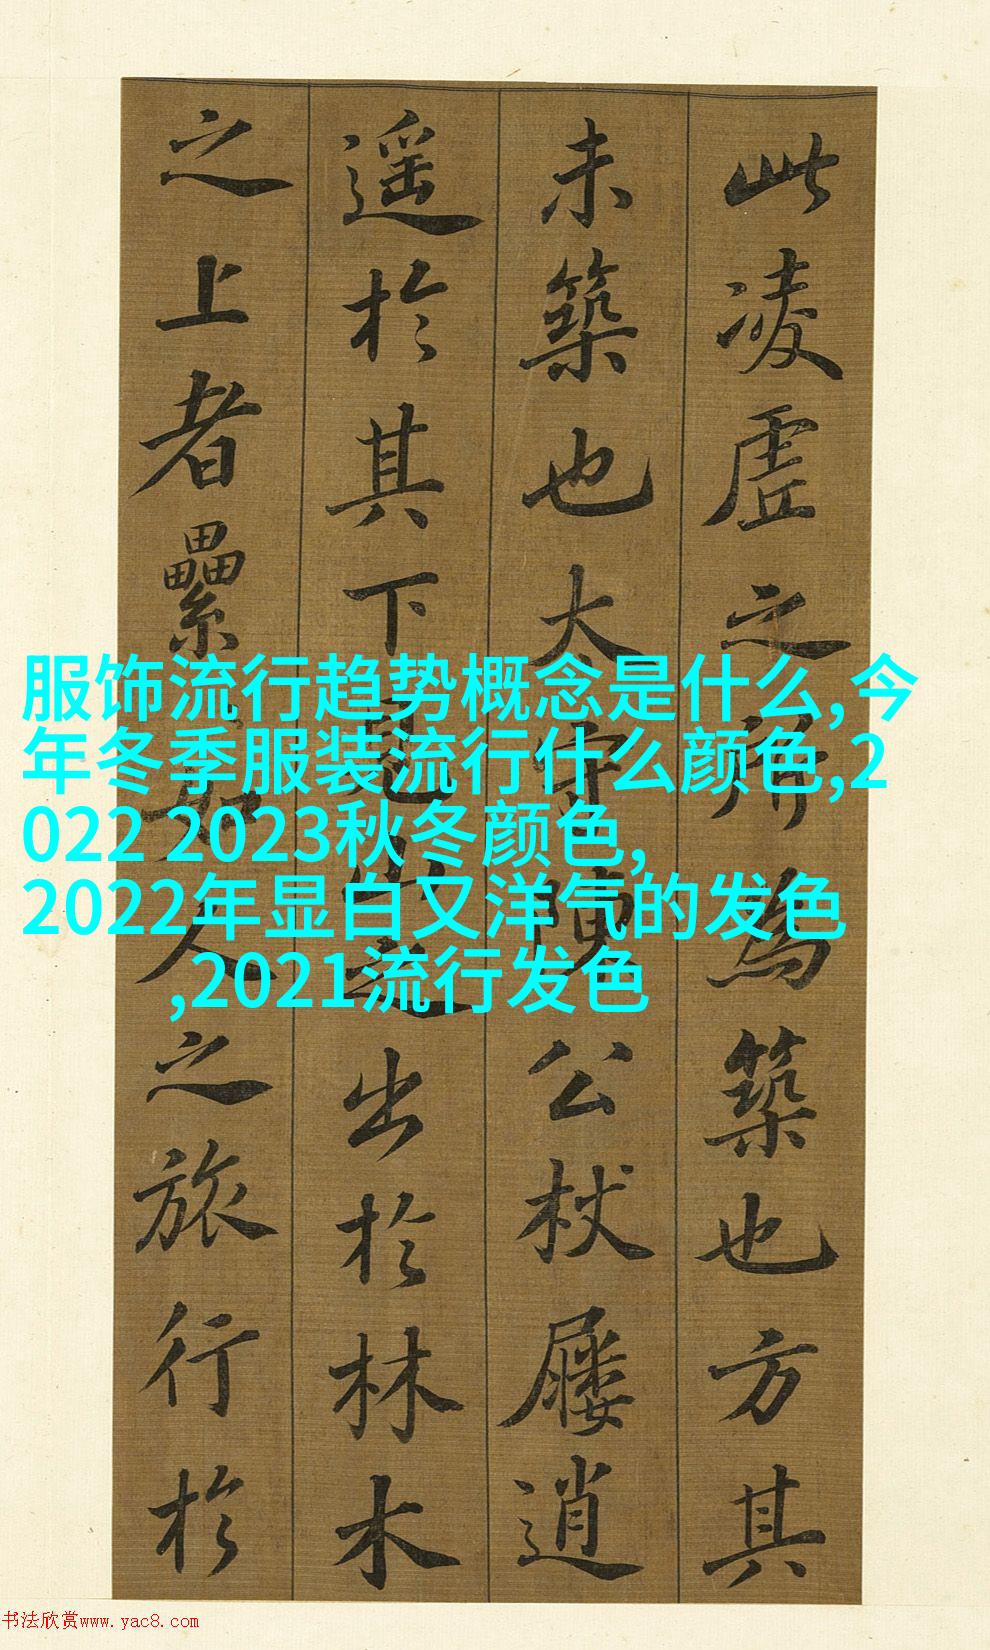 此凌虛之所為築也方其
未築也太守陳公杖屨逍
遥於其下見山之出於林木
之上者纍如人之旅行於
服饰流行趋势概念是什么,今
年冬季服装流行什么颜色,2
022 2023秋冬颜色,
2022年显白又洋气的发色
,2021流行发色
书法欣赏www.yac8.com